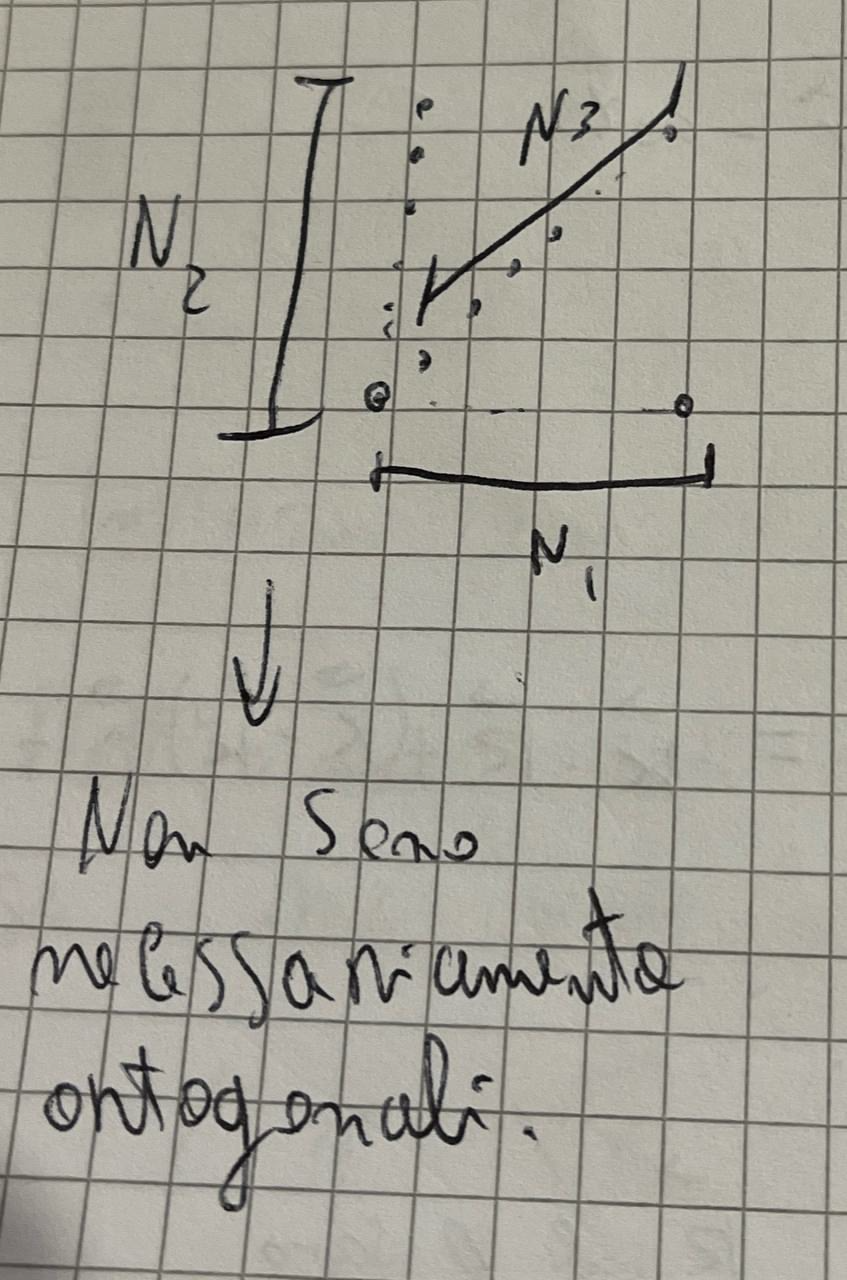 N3
N2
N1
Non sono
necessariamente
ortogonali.